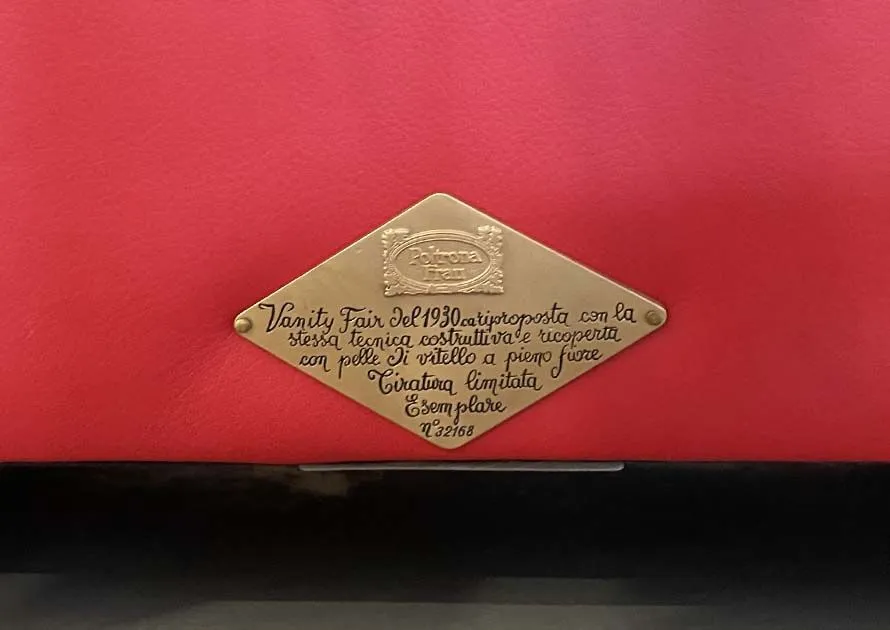 Poltrona
Frau
Vanity Fair del 1930 ca riproposta con la
stessa tecnica costruttiva e ricoperta
con pelle di vitello a pieno fiore
Tiratura limitata
Esemplare
n° 32168